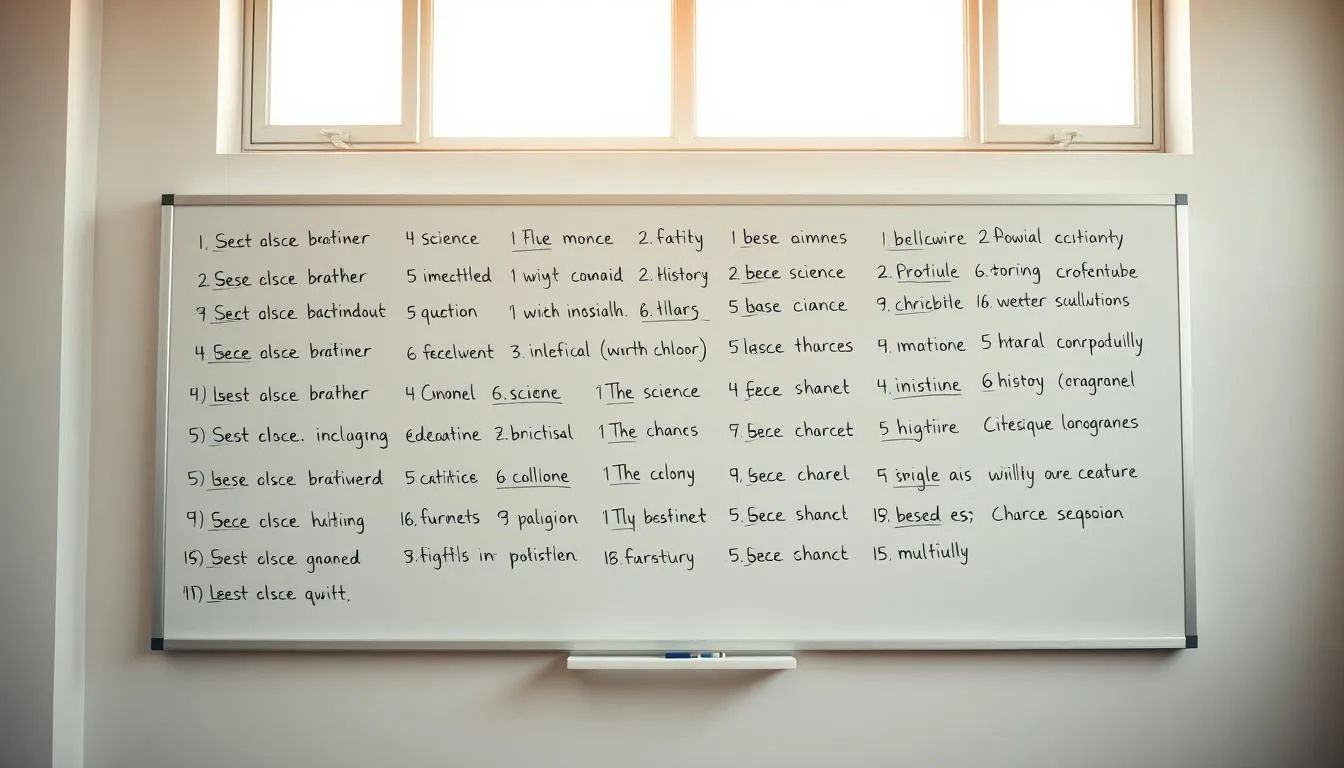 1. Sect alsce bratiner 4 science 1 Flue monce 2. fatity 1 bese aimnes 1 bellcwire 2 Powial ccitianty
2. Sese clsce brather 5 imecttled 1 wiyt comaid 2. History 2 bece science 2. Protiule 6. toring crofentube
9 Sect alsce bactindout 5 quction 1 wich inosialh. 6. tllars 5 base ciance 9. chricbile 16. wetter scullutions
4 Sece alsce bratiner 6 fecelwent 3. inlefical (wurth chloor) 5 lasce tharces 9. imatione 5 htaral conrpodully
4) Lsest alsce brather 4 Cinonel 6. sciene 1 The science 4 fece shanet 4. inistine 6 histoy (oragranel
5) Sest clsce. inclaging edecatine 2. brictisal 1 The chancs 7. Sece charcet 5 higtire Citesique lonogranes
5) lsese olsce bratiuerd 5. catitice 6 callione 1 The celony 9. Sece charel 5 srigle ais willly are ceature
9) Sece clsce huitiing 16. furnets 9 paligion 1 Tly bestinet 5. Sece shanct 19. besed es; Charce seqsoion
15) Sest clsce gnaned 3. figtfls in potistlen 18. farstury 5. Sece chanct 15. multiully
11) Leest clsce qwitt.